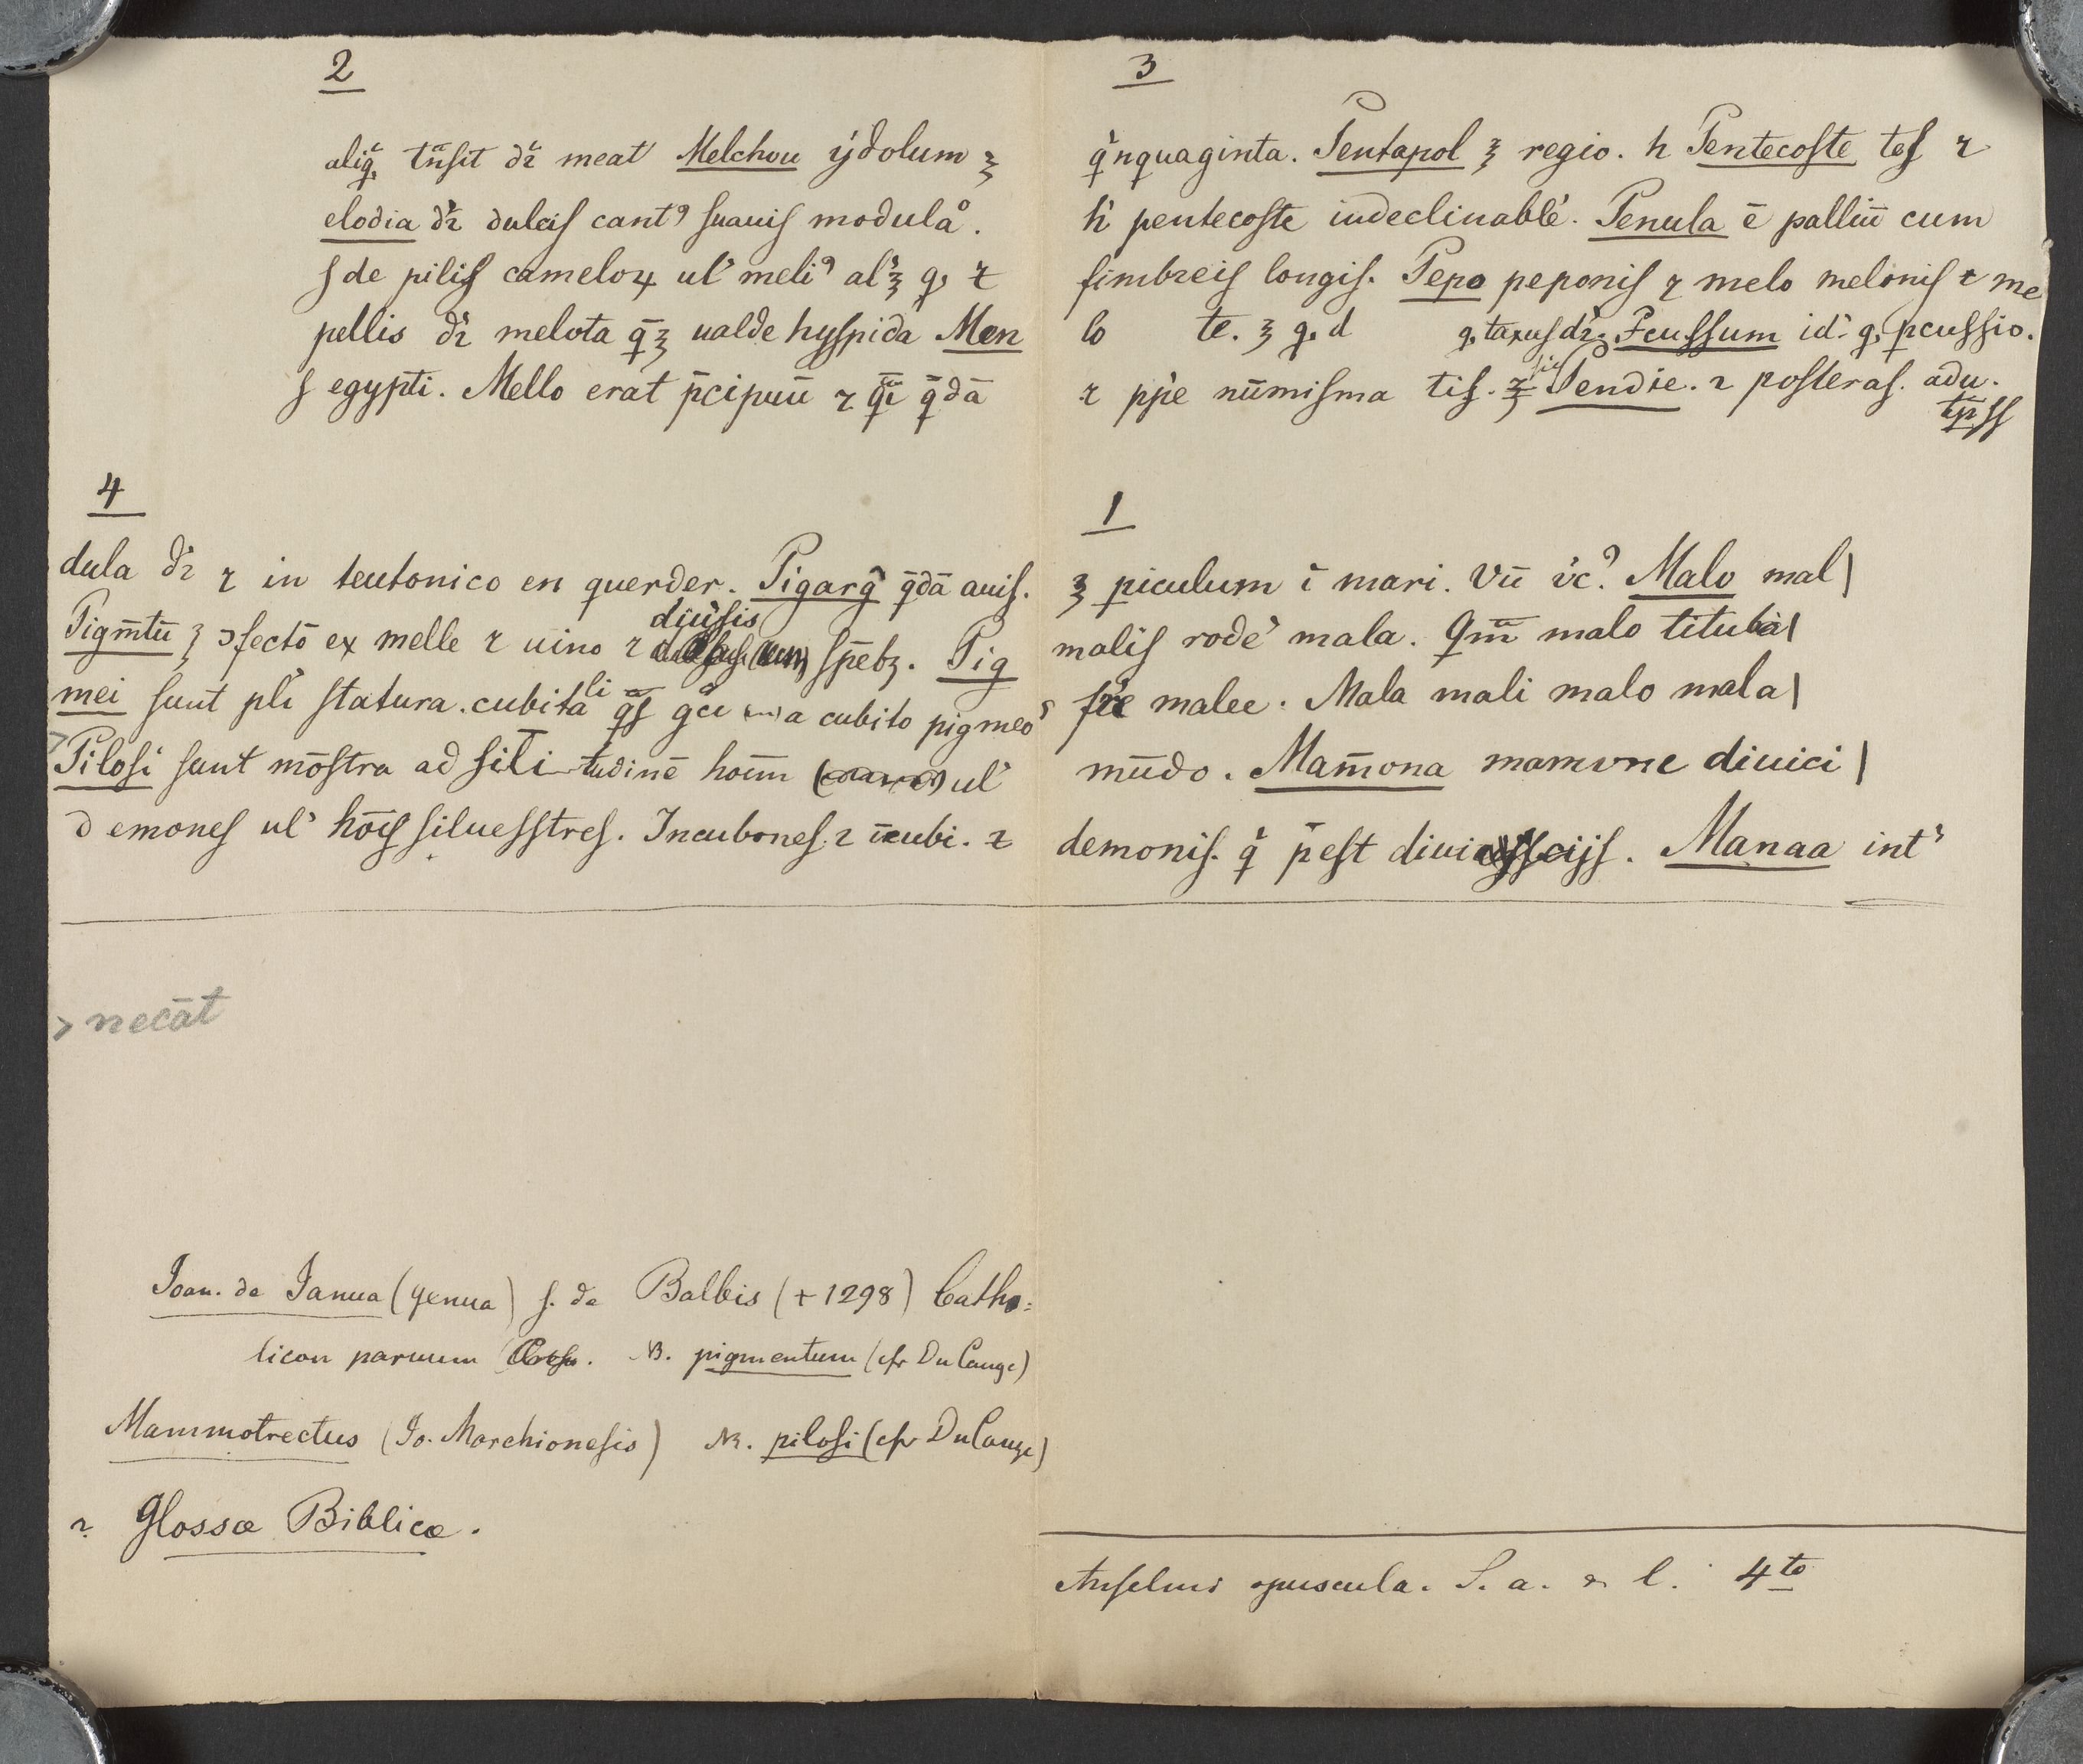 2
aliq̄ tn̄sit dr̄ meat Melchou ydolum ꝫ
elodia dr̄ dulcis cantꝰ suauis modulao.
s de pilis cameloꝝ ul' meliꝰ al'ꝫ q, ⁊
pellis dr̄ melota q̄ꝫ ualde hyspida Men
s egypti. Mello erat p̄cipuū ⁊ q̄i q̄dā
3
q'nquaginta. Pentapol ꝫ regio. h Pentecoste tes ⁊
h' pentecoste indeclinable'. Penula ē palliū cum
fimbreis longis. Pepo peponis ⁊ melo melonis ⁊ me
lo te. ꝫ q, d q, taxus dr̄. Pcussum id' q, pcussio.
⁊ ppe nūmisma tis. sic Pendie. ⁊ posteras. adu.
4
dula dr̄ ⁊ in teutonico en querder. Pigarg̑ q̄dā auis.
Pigm̄tū ꝫ ɔfectō ex melle ⁊ uino ⁊ diu'sis sp̄ebꝫ. Pig
mei sunt pli statura. cubita li q̄s gci a cubito pigmeo
Pilosi sunt mōstra ad sili-tudinē hoīm ul'
demones ul' hōīs siluesstres. Incubones. ⁊ īcubi. ⁊
1
ꝫ piculum ī mari. Vū v'c? Malo mal|
malis rode' mala. Qm̄ malo tituba|
fre malee. Mala mali malo mala|
mūdo. Mam̄ona mamone diuici|
demonis. q' p̄est diuicijs. Manaa int'
> necāt
Joan. de Janua (Genua) s. de Balbis (+ 1298) Catho=
licon paruum NB. pigmentum (cfr Du Cange)
Mammotrectus (Jo. Marchionesis) NB. pilosi (cfr Du Cange)
? Glossæ Biblicæ.
Anselmi opuscula. S. a. & l. 4to